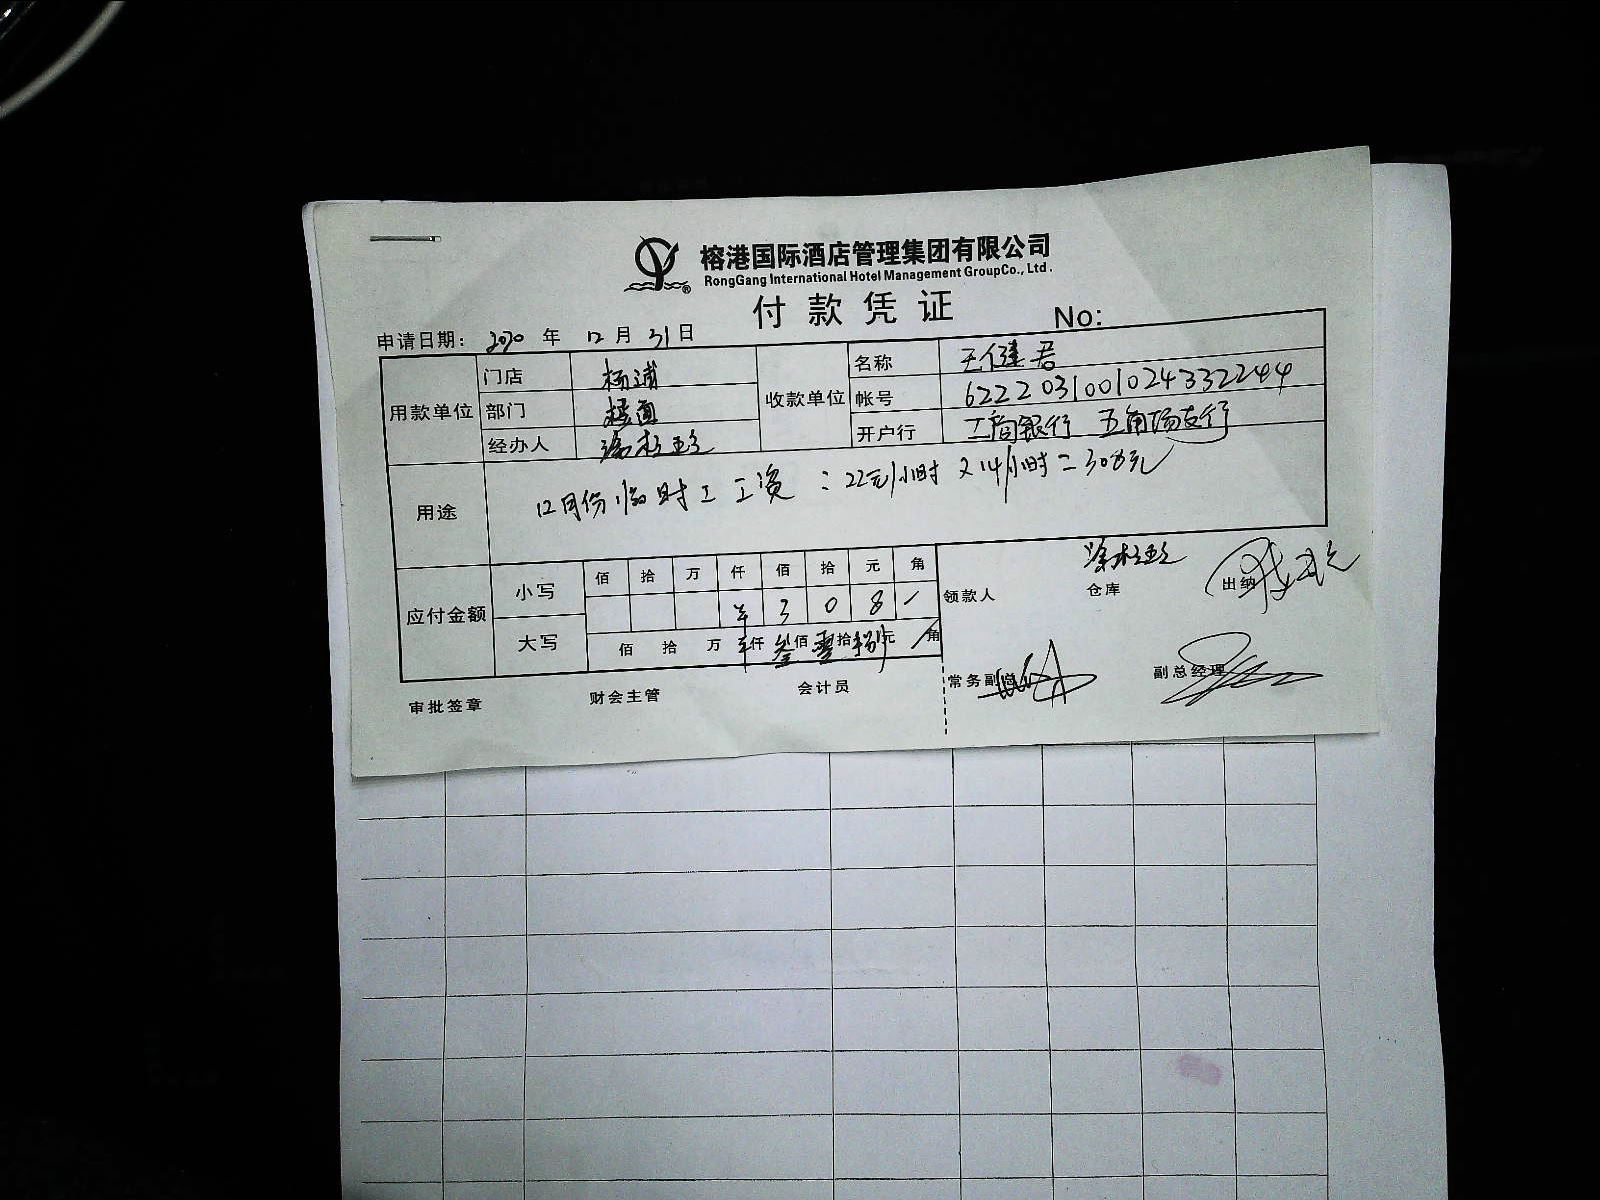 榕港国际酒店管理集团有限公司
RongGang International Hotel Management GroupCo., Ltd.
付款凭证
No:
申请日期: 2020 年 12 月 31 日
用款单位 门店 杨浦 收款单位 名称 王健君
部门 楼面 帐号 6222031001024332244
经办人 开户行 工商银行 五角场支行
用途 12月份临时工工资:22元/小时×14小时=308元
应付金额 小写 佰 拾 万 仟 佰 拾 元 角
¥ 3 0 8 /
大写 佰 拾 万 ¥仟 叁佰 零拾 捌元 /角
领款人 仓库 出纳
审批签章 财会主管 会计员 常务副总 副总经理